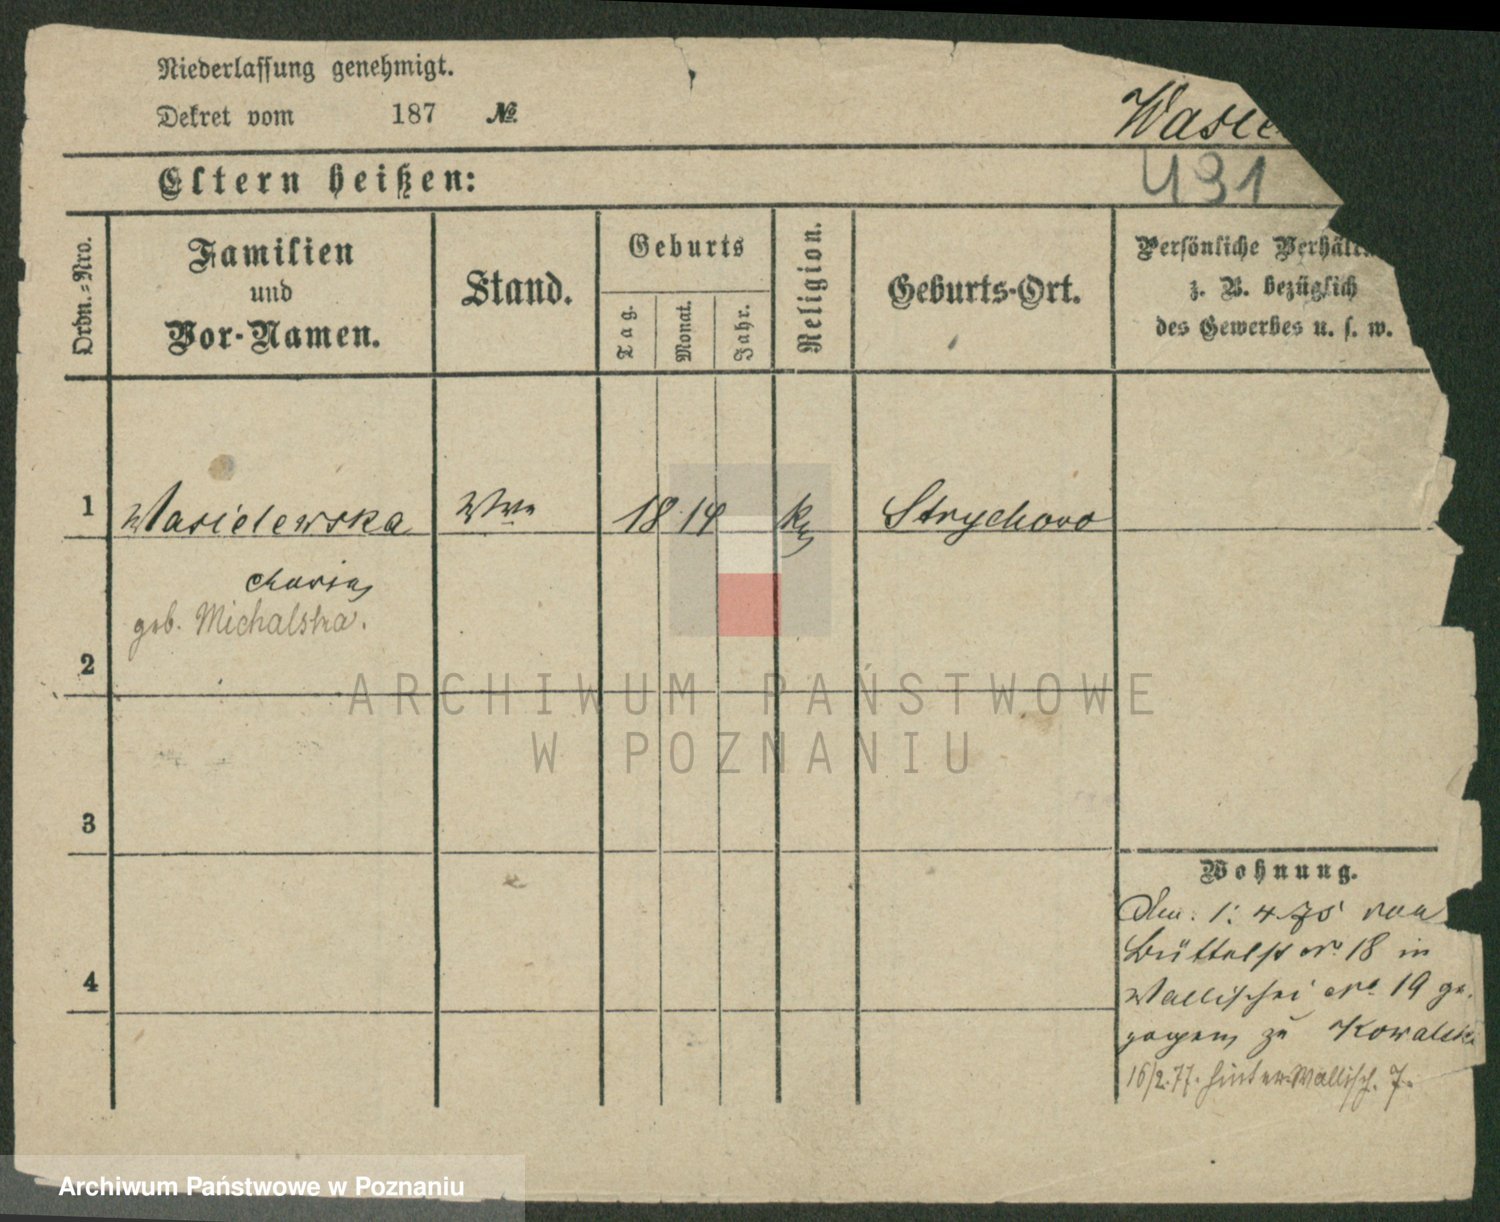 Niederlassung genehmigt.
Dekret vom 187 №
Wasie
431
Eltern heißen:
Ordn.=Nro.
Familien
und
Vor-Namen.
Stand.
Geburts
Tag.
Monat.
Jahr.
Religion.
Geburts-Ort.
Persönliche Verhält
z. B. bezüglich
des Gewerbes u. s. w.
1 Wasielewska Wwe 18 14 k Strychowo
Maria
geb. Michalska.
2
3
Wohnung.
1. 4 75 von
Büttelst No 18 in
4
Wallischei No 19 ge-
zogen zu Kowalski
16/2.77. Hinter Wallisch. 7.
ARCHIWUM PAŃSTWOWE
W POZNANIU
Archiwum Państwowe w Poznaniu